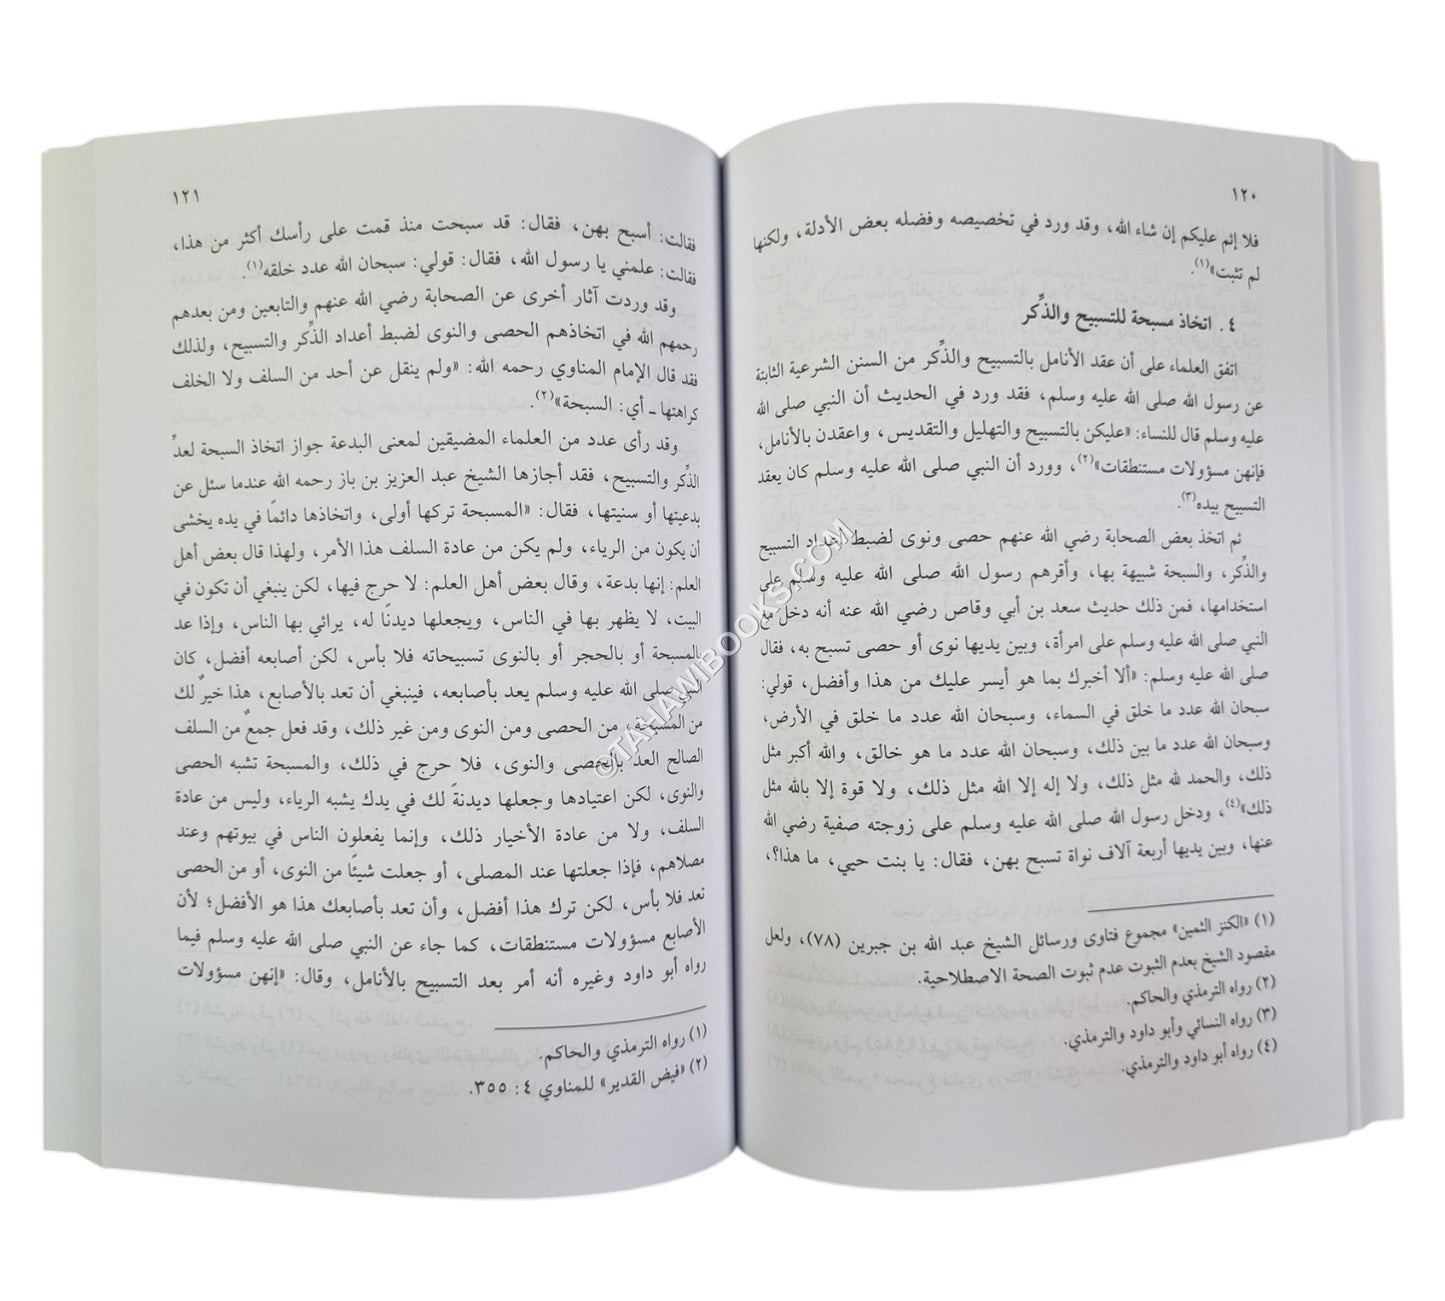 ١٢٠
فلا إثم عليكم إن شاء الله، وقد ورد في تخصيصه وفضله بعض الأدلة، ولكنها
لم تثبت»(١).
٤ . اتخاذ مسبحة للتسبيح والذِّكر
اتفق العلماء على أن عقد الأنامل بالتسبيح والذِّكر من السنن الشرعية الثابتة
عن رسول الله صلى الله عليه وسلم، فقد ورد في الحديث أن النبي صلى الله
عليه وسلم قال للنساء: «عليكن بالتسبيح والتهليل والتقديس، واعقدن بالأنامل،
فإنهن مسؤولات مستنطقات»(٢)، وورد أن النبي صلى الله عليه وسلم كان يعقد
التسبيح بيده(٣).
ثم اتخذ بعض الصحابة رضي الله عنهم حصى ونوى لضبط أعداد التسبيح
والذِّكر، والسبحة شبيهة بها، وأقرهم رسول الله صلى الله عليه وسلم على
استخدامها، فمن ذلك حديث سعد بن أبي وقاص رضي الله عنه أنه دخل مع
النبي صلى الله عليه وسلم على امرأة، وبين يديها نوى أو حصى تسبح به، فقال
صلى الله عليه وسلم: «ألا أخبرك بما هو أيسر عليك من هذا وأفضل، قولي:
سبحان الله عدد ما خلق في السماء، وسبحان الله عدد ما خلق في الأرض،
وسبحان الله عدد ما بين ذلك، وسبحان الله عدد ما هو خالق، والله أكبر مثل
ذلك، والحمد لله مثل ذلك، ولا إله إلا الله مثل ذلك، ولا قوة إلا بالله مثل
ذلك»(٤)، ودخل رسول الله صلى الله عليه وسلم على زوجته صفية رضي الله
عنها، وبين يديها أربعة آلاف نواة تسبح بهن، فقال: يا بنت حيي، ما هذا؟،
(١) «الكنز الثمين» مجموع فتاوى ورسائل الشيخ عبد الله بن جبرين (٧٨)، ولعل
مقصود الشيخ بعدم الثبوت عدم ثبوت الصحة الاصطلاحية.
(٢) رواه الترمذي والحاكم.
(٣) رواه النسائي وأبو داود والترمذي.
(٤) رواه أبو داود والترمذي.
١٢١
فقالت: أسبح بهن، فقال: قد سبحت منذ قمت على رأسك أكثر من هذا،
فقالت: علمني يا رسول الله، فقال: قولي: سبحان الله عدد خلقه(١).
وقد وردت آثار أخرى عن الصحابة رضي الله عنهم والتابعين ومن بعدهم
رحمهم الله في اتخاذهم الحصى والنوى لضبط أعداد الذِّكر والتسبيح، ولذلك
فقد قال الإمام المناوي رحمه الله: «ولم ينقل عن أحد من السلف ولا الخلف
كراهتها ـ أي: السبحة»(٢).
وقد رأى عدد من العلماء المضيقين لمعنى البدعة جواز اتخاذ السبحة لعدِّ
الذِّكر والتسبيح، فقد أجازها الشيخ عبد العزيز بن باز رحمه الله عندما سئل عن
بدعيتها أو سنيتها، فقال: «المسبحة تركها أولى، واتخاذها دائمًا في يده يخشى
أن يكون من الرياء، ولم يكن من عادة السلف هذا الأمر، ولهذا قال بعض أهل
العلم: إنها بدعة، وقال بعض أهل العلم: لا حرج فيها، لكن ينبغي أن تكون في
البيت، لا يظهر بها في الناس، ويجعلها ديدنًا له، يرائي بها الناس، وإذا عد
بالمسبحة أو بالحجر أو بالنوى تسبيحاته فلا بأس، لكن أصابعه أفضل، كان
النبي صلى الله عليه وسلم يعد بأصابعه، فينبغي أن تعد بالأصابع، هذا خيرٌ لك
من المسبحة، من الحصى ومن النوى ومن غير ذلك، وقد فعل جمعٌ من السلف
الصالح العد بالحصى والنوى، فلا حرج في ذلك، والمسبحة تشبه الحصى
والنوى، لكن اعتيادها وجعلها ديدنةً لك في يدك يشبه الرياء، وليس من عادة
السلف، ولا من عادة الأخيار ذلك، وإنما يفعلون الناس في بيوتهم وعند
مصلاهم، فإذا جعلتها عند المصلى، أو جعلت شيئًا من النوى، أو من الحصى
تعد فلا بأس، لكن ترك هذا أفضل، وأن تعد بأصابعك هذا هو الأفضل؛ لأن
الأصابع مسؤولات مستنطقات، كما جاء عن النبي صلى الله عليه وسلم فيما
رواه أبو داود وغيره أنه أمر بعد التسبيح بالأنامل، وقال: «إنهن مسؤولات
(١) رواه الترمذي والحاكم.
(٢) «فيض القدير» للمناوي ٤: ٣٥٥.
©TAHAWIBOOKS.COM